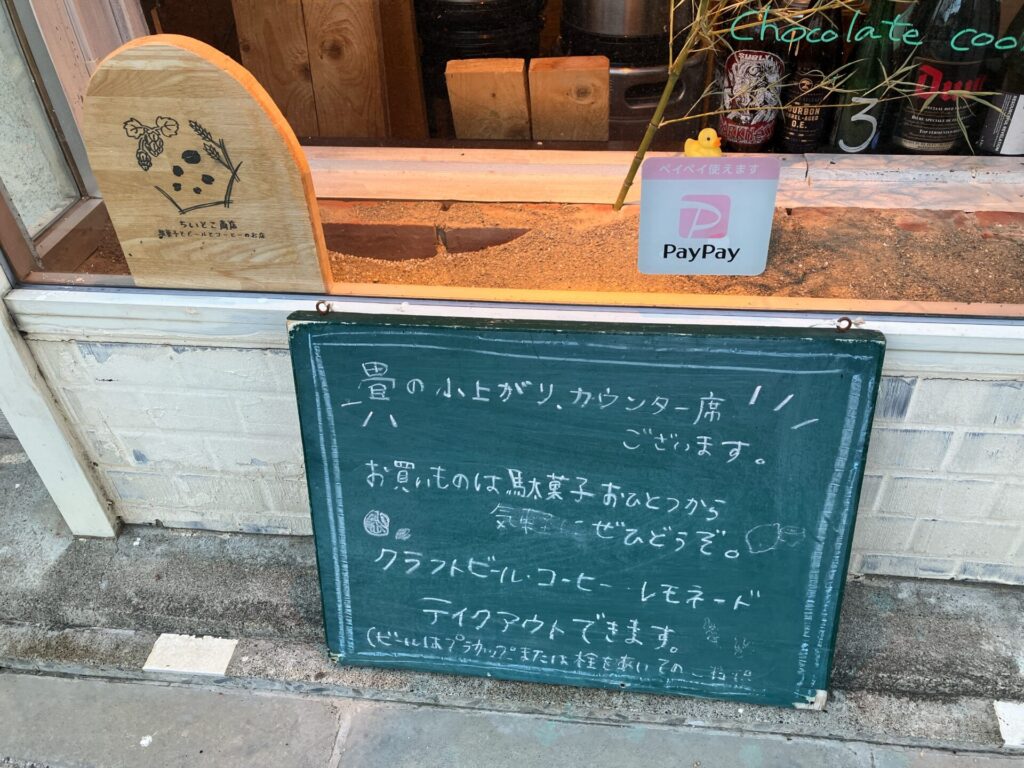 Chocolate
SURLY
BOURBON
BARREL-AGED
O.E.
3
Duvel
ちいとこ商店
駄菓子とビールとコーヒーのお店
ペイペイ使えます
PayPay
畳の小上がり、カウンター席
ございます。
お買いものは駄菓子おひとつから
ぜひどうぞ。
クラフトビール・コーヒー・レモネード
テイクアウトできます。
(ビールはプラカップまたは栓をあいての